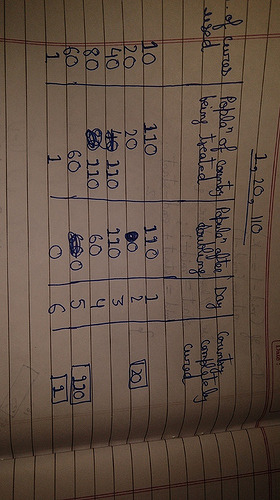 1, 20, 110
. of cures Populn of country Populn after Day Country
used being treated doubling completely
cured
10 110 110 1
20 20 0 2 20
40 110 110 3
80 110 60 4
60 60 0 5 110
1 1 0 6 1